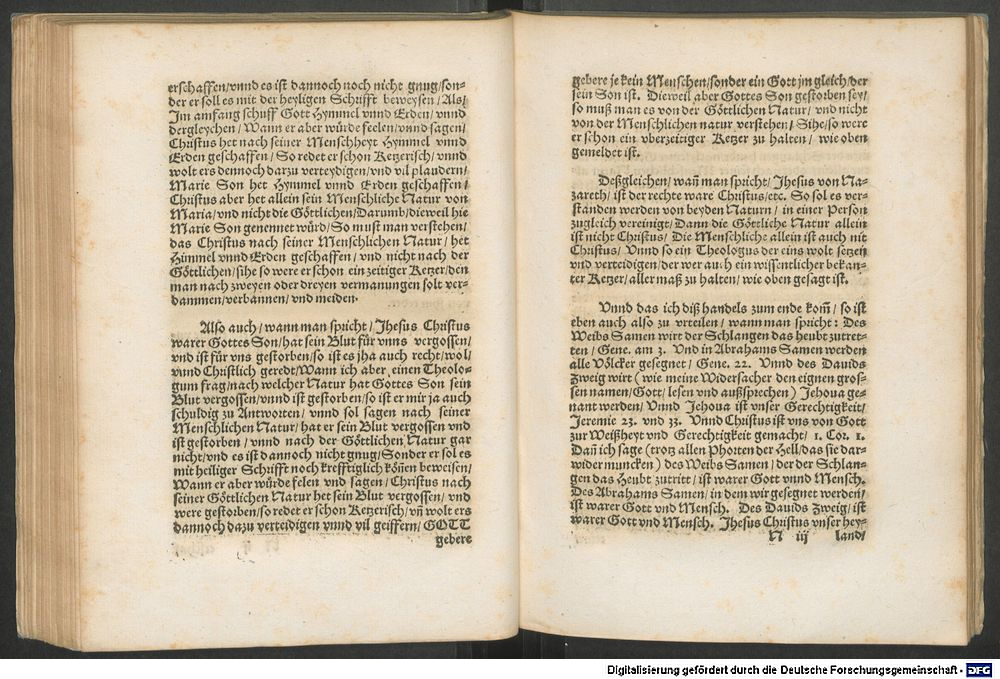 erschaffen/vnnd es ist dannoch noch nicht gnug/son-
der er soll es mit der heyligen Schrifft beweysen/Als/
Im amfang schuff Gott Hymmel vnnd Erden/vnnd
dergleychen/Wann er aber würde feelen/vnnd sagen/
Christus het nach seiner Menschheyt Hymmel vnnd
Erden geschaffen/So redet er schon Ketzerisch/vnnd
wolt ers dennoch darzu verteydigen/vnd vil plaudern/
Marie Son het Hymmel vnnd Erden geschaffen/
Christus aber het allein sein Menschliche Natur von
Maria/vnd nicht die Göttlichen/Darumb/dieweil hie
Marie Son genennet würd/So must man verstehen/
das Christus nach seiner Menschlichen Natur/het
Hümmel vnnd Erden geschaffen/vnd nicht nach der
Göttlichen/sihe so were er schon ein zeitiger Ketzer/den
man nach zweyen oder dreyen vermanungen solt ver-
dammen/verbannen/vnd meiden.
Also auch/wann man spricht/Jhesus Christus
warer Gottes Son/hat sein Blut für vnns vergossen/
vnd ist für vns gestorben/so ist es jha auch recht/wol/
vnnd Christlich geredt/Wann ich aber einen Theolo-
gum frag/nach welcher Natur hat Gottes Son sein
Blut vergossen/vnnd ist gestorben/so ist er mir ja auch
schuldig zu Antworten/vnnd sol sagen nach seiner
Menschlichen Natur/hat er sein Blut vergossen vnd
ist gestorben/vnnd nach der Göttlichen Natur gar
nicht/vnd es ist dannoch nicht gnug/Sonder er sol es
mit heiliger Schrifft noch krefftiglich köñen beweisen/
Wann er aber würde felen vnd sagen/Christus nach
seiner Göttlichen Natur het sein Blut vergossen/vnd
were gestorben/so redet er schon Ketzerisch/vñ wolt ers
dannoch dazu verteidigen vnnd vil geiffern/GOTT
gebere
gebere je kein Menschen/sonder ein Gott jm gleich/der
sein Son ist. Dieweil aber Gottes Son gestorben sey/
so muß man es von der Göttlichen Natur/vnd nicht
von der Menschlichen natur verstehen/Sihe/so were
er schon ein vberzeitiger Ketzer zu halten/wie oben
gemeldet ist.
Deßgleichen/wañ man spricht/Jhesus von Na-
zareth/ist der rechte ware Christus/etc. So sol es ver-
standen werden von beyden Naturn/in einer Person
zugleich vereinigt/Dann die Göttliche Natur allein
ist nicht Christus/Die Menschliche allein ist auch nit
Christus/Vnnd so ein Theologus der eins wolt setzen
vnd verteidigen/der wer auch ein wissentlicher bekan-
ter Ketzer/aller maß zu halten/wie oben gesagt ist.
Vnnd das ich diß handels zum ende kom̃/so ist
eben auch also zu vrteilen/wann man spricht: Des
Weibs Samen wirt der Schlangen das heubt zutret-
ten/Gene. am 3. Vnd in Abrahams Samen werden
alle Völcker gesegnet/Gene. 22. Vnnd des Dauids
Zweig wirt (wie meine Widersacher den eignen gros-
sen namen/Gott/lesen vnd außsprechen) Jehoua ge-
nant werden/Vnnd Jehoua ist vnser Gerechtigkeit/
Jeremie 23. vnd 33. Vnnd Christus ist vns von Gott
zur Weißheyt vnd Gerechtigkeit gemacht/1. Cor. 1.
Dañ ich sage (trotz allen Phorten der Hell/das sie dar-
wider muncken) des Weibs Samen/der der Schlan-
gen das Heubt zutritt/ist warer Gott vnnd Mensch.
Des Abrahams Samen/in dem wir gesegnet werden/
ist warer Gott vnd Mensch. Des Dauids Zweig/ist
warer Gott vnd Mensch. Jhesus Christus vnser hey-
N iij land/
Digitalisierung gefördert durch die Deutsche Forschungsgemeinschaft - DFG